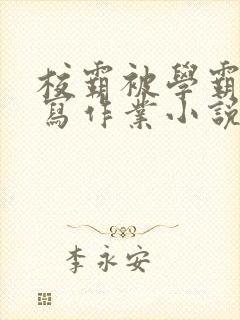 校霸被學霸
寫作業小說
李永安